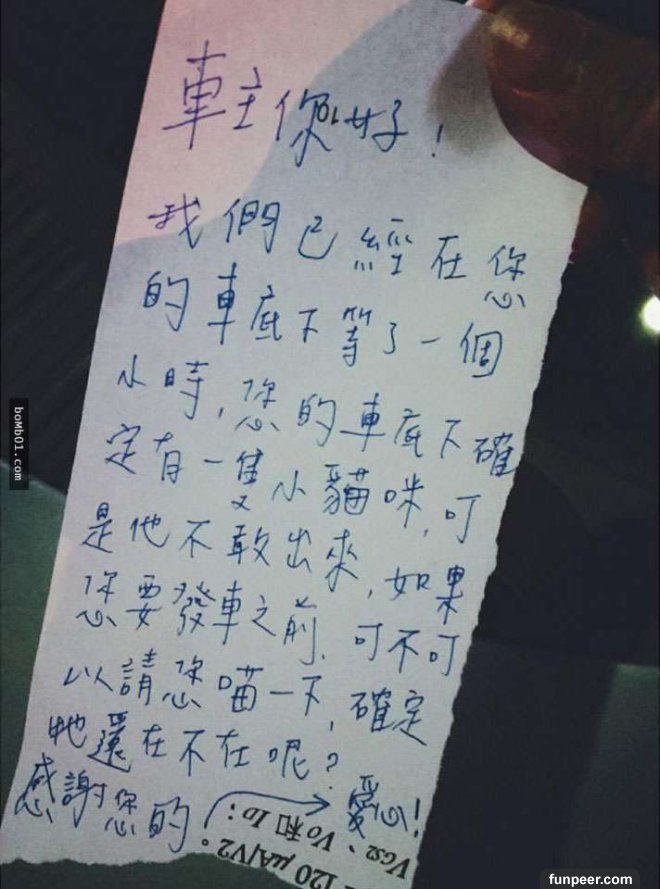 車主你好!
我們已經在您
的車底下等了一個
小時,您的車底下確
定有一隻小貓咪,可
是他不敢出來,如果
您要發車之前,可不可
以請您喵一下,確定
牠還在不在呢?
感謝您的 愛心!
VGS2、VO和IO:
120 μA/V2。
boMb01.com
funpeer.com